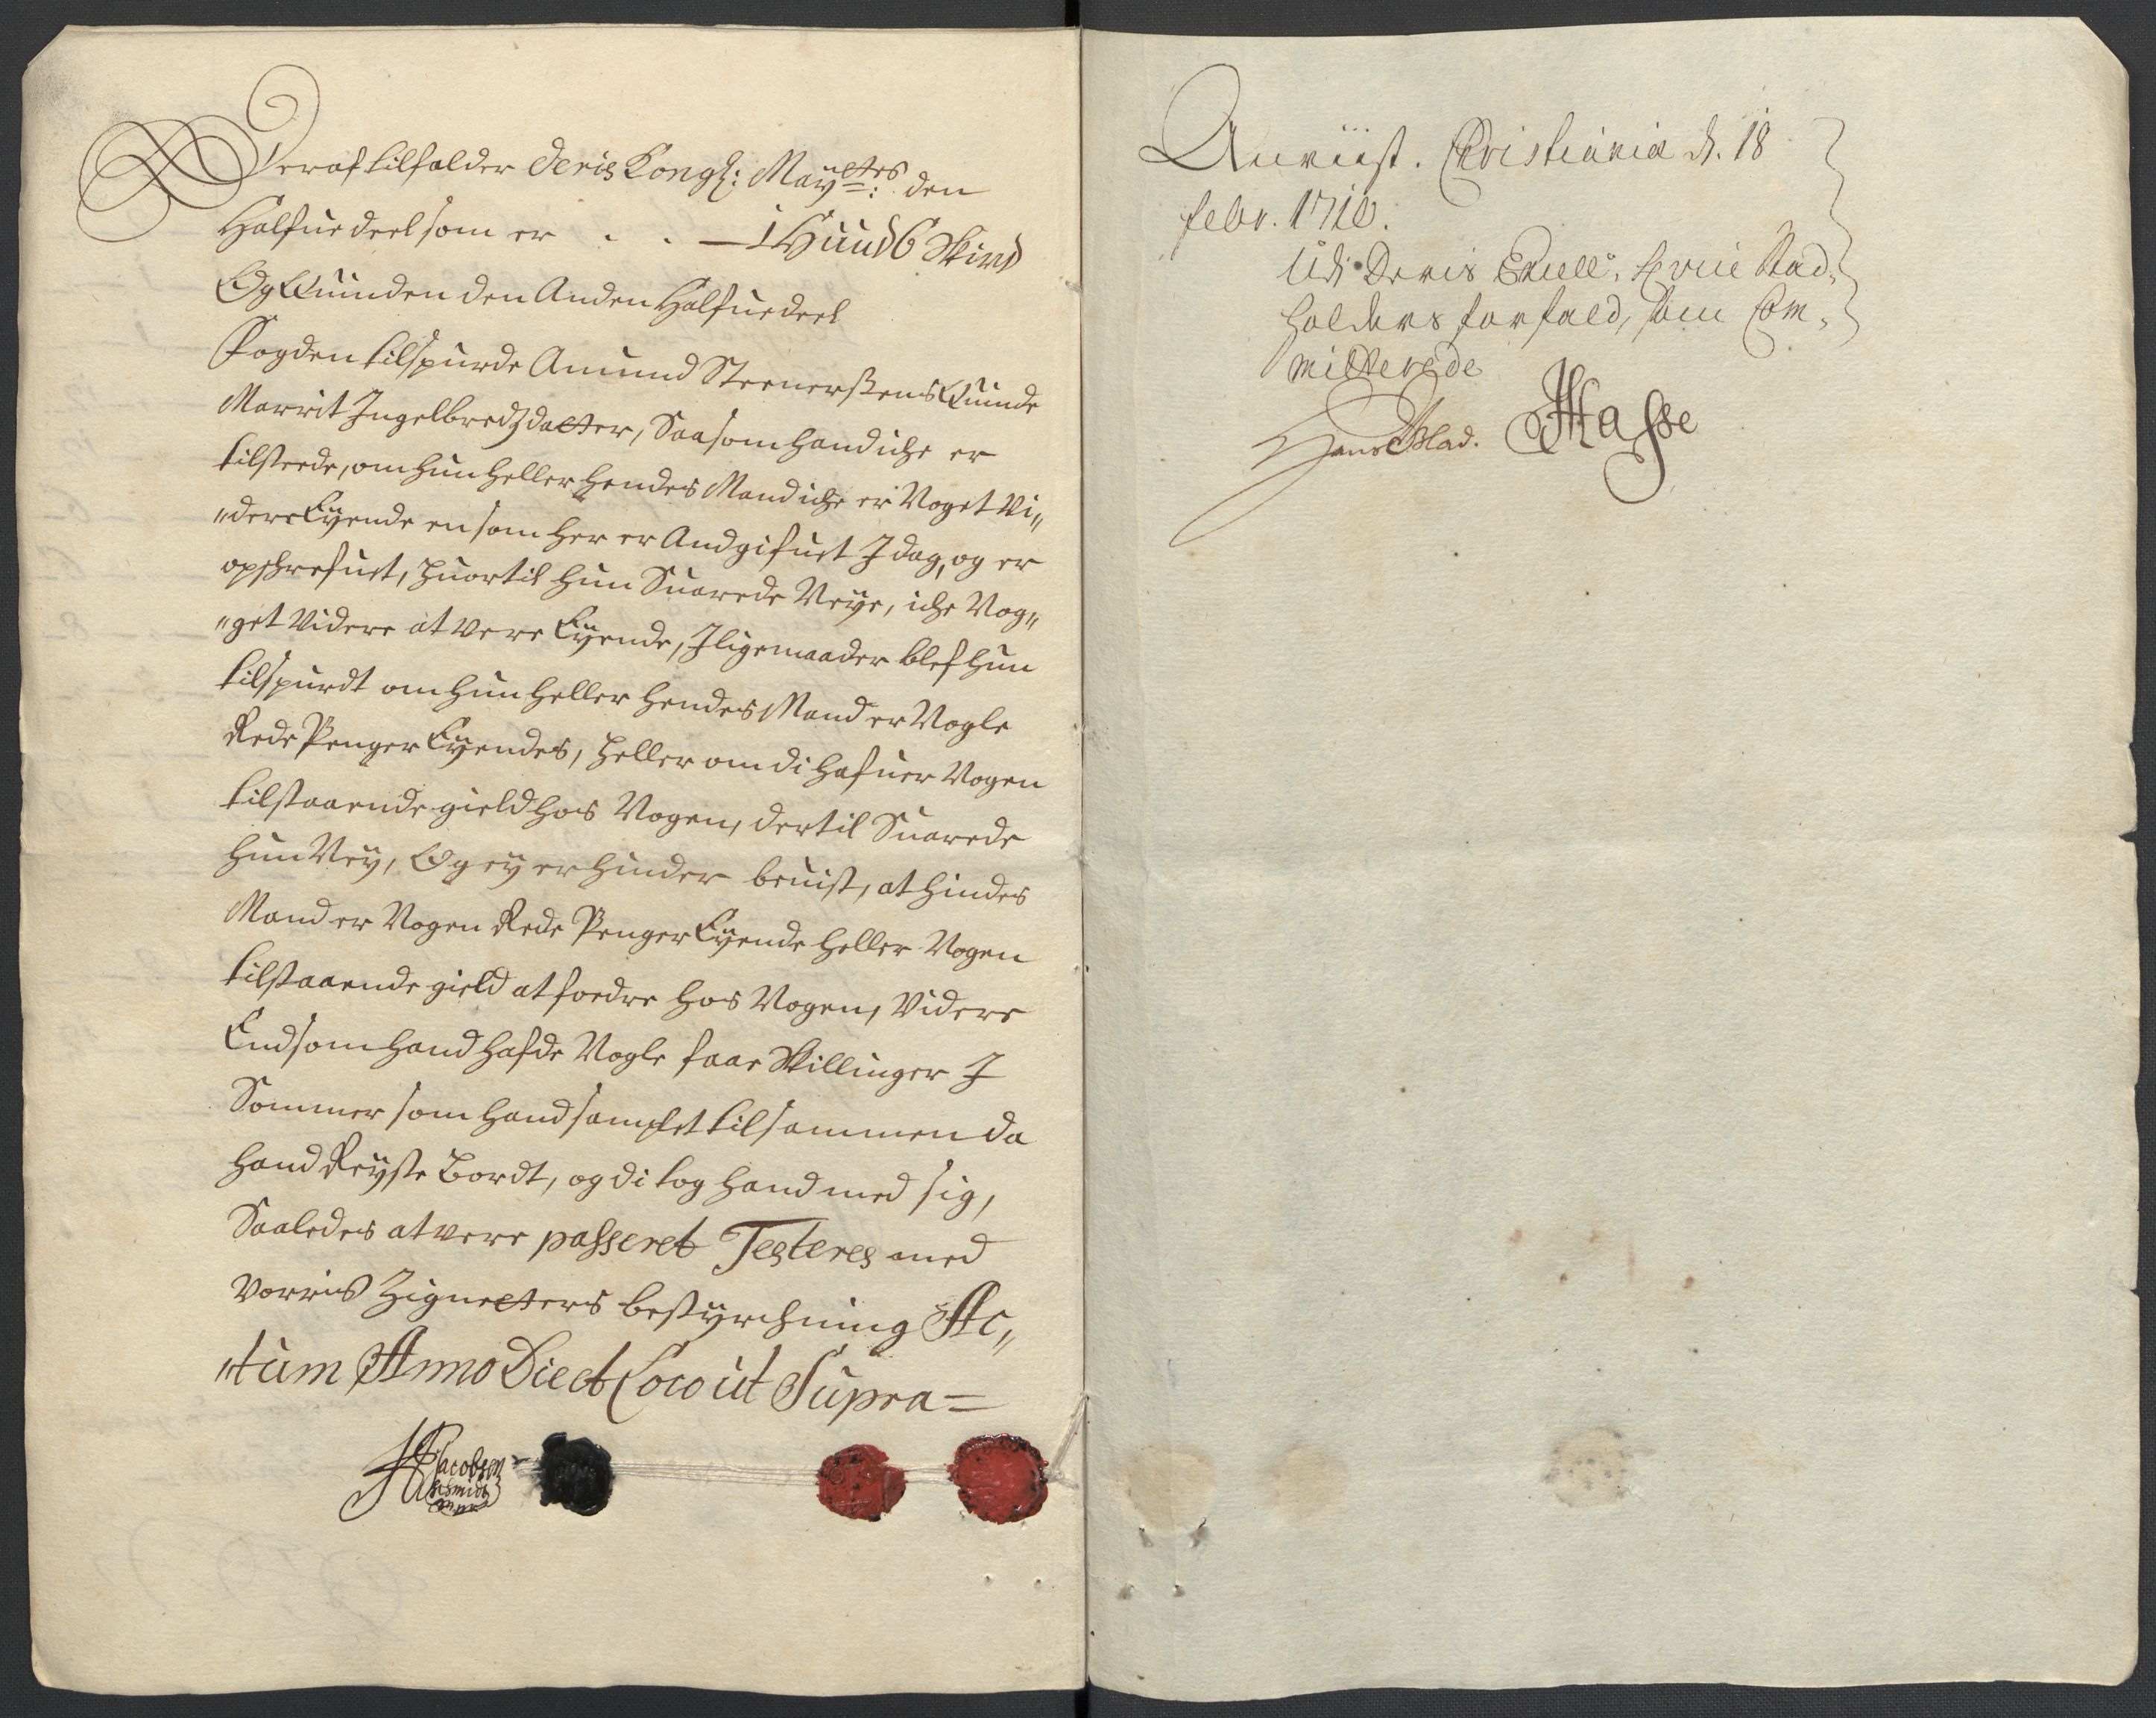 Deraf tilfalder Deris Kongl: Mayttes: den
Halfue deel som er . . — 1 Huud 6 Skind
Og Quinden den Anden Halfue deel
Fogden tilspurde Amund Steenerßens Quinde
Marrit Ingelbredzdatter, Saasom hand iche er
tilstede, om hun heller hendes Mand iche er Noget Vi„
„dere Eyende en som her er Andgifuet I dag, og er
opschrefuet, huortil hun Suarede Neye, iche Nog„
„get Videre at vere Eyende, I ligemaader blef hun
tilspurdt om hun heller hendes Mand er Nogle
Rede Penger Eyendes, heller om di hafuer Nogen
tilstaaende gield hos Nogen, dertil Suarede
hun Ney, Og ey er hinder beuist, at hindes
Mand er Nogen Rede Penger Eyende heller Nogen
tilstaaende gield at fordre hos Nogen, Videre
End som hand hafde Nogle faae Skillinger I
Sommer som hand samlet tilsammen da
hand Reyste bordt, og di tog hand med sig,
Saaledes at vere passeret Testeres med
Vorris Zignetters bestyrchning Ac„
„tum Anno Die et Loco ut Supra =
Jacobsen
Schmidt
Anviist. Christiania d. 18
febr. 1710.
Udi Deris Excell: Herre Stad,
holders forfald, som Com,
mitterede
Hans Blad. Hasse